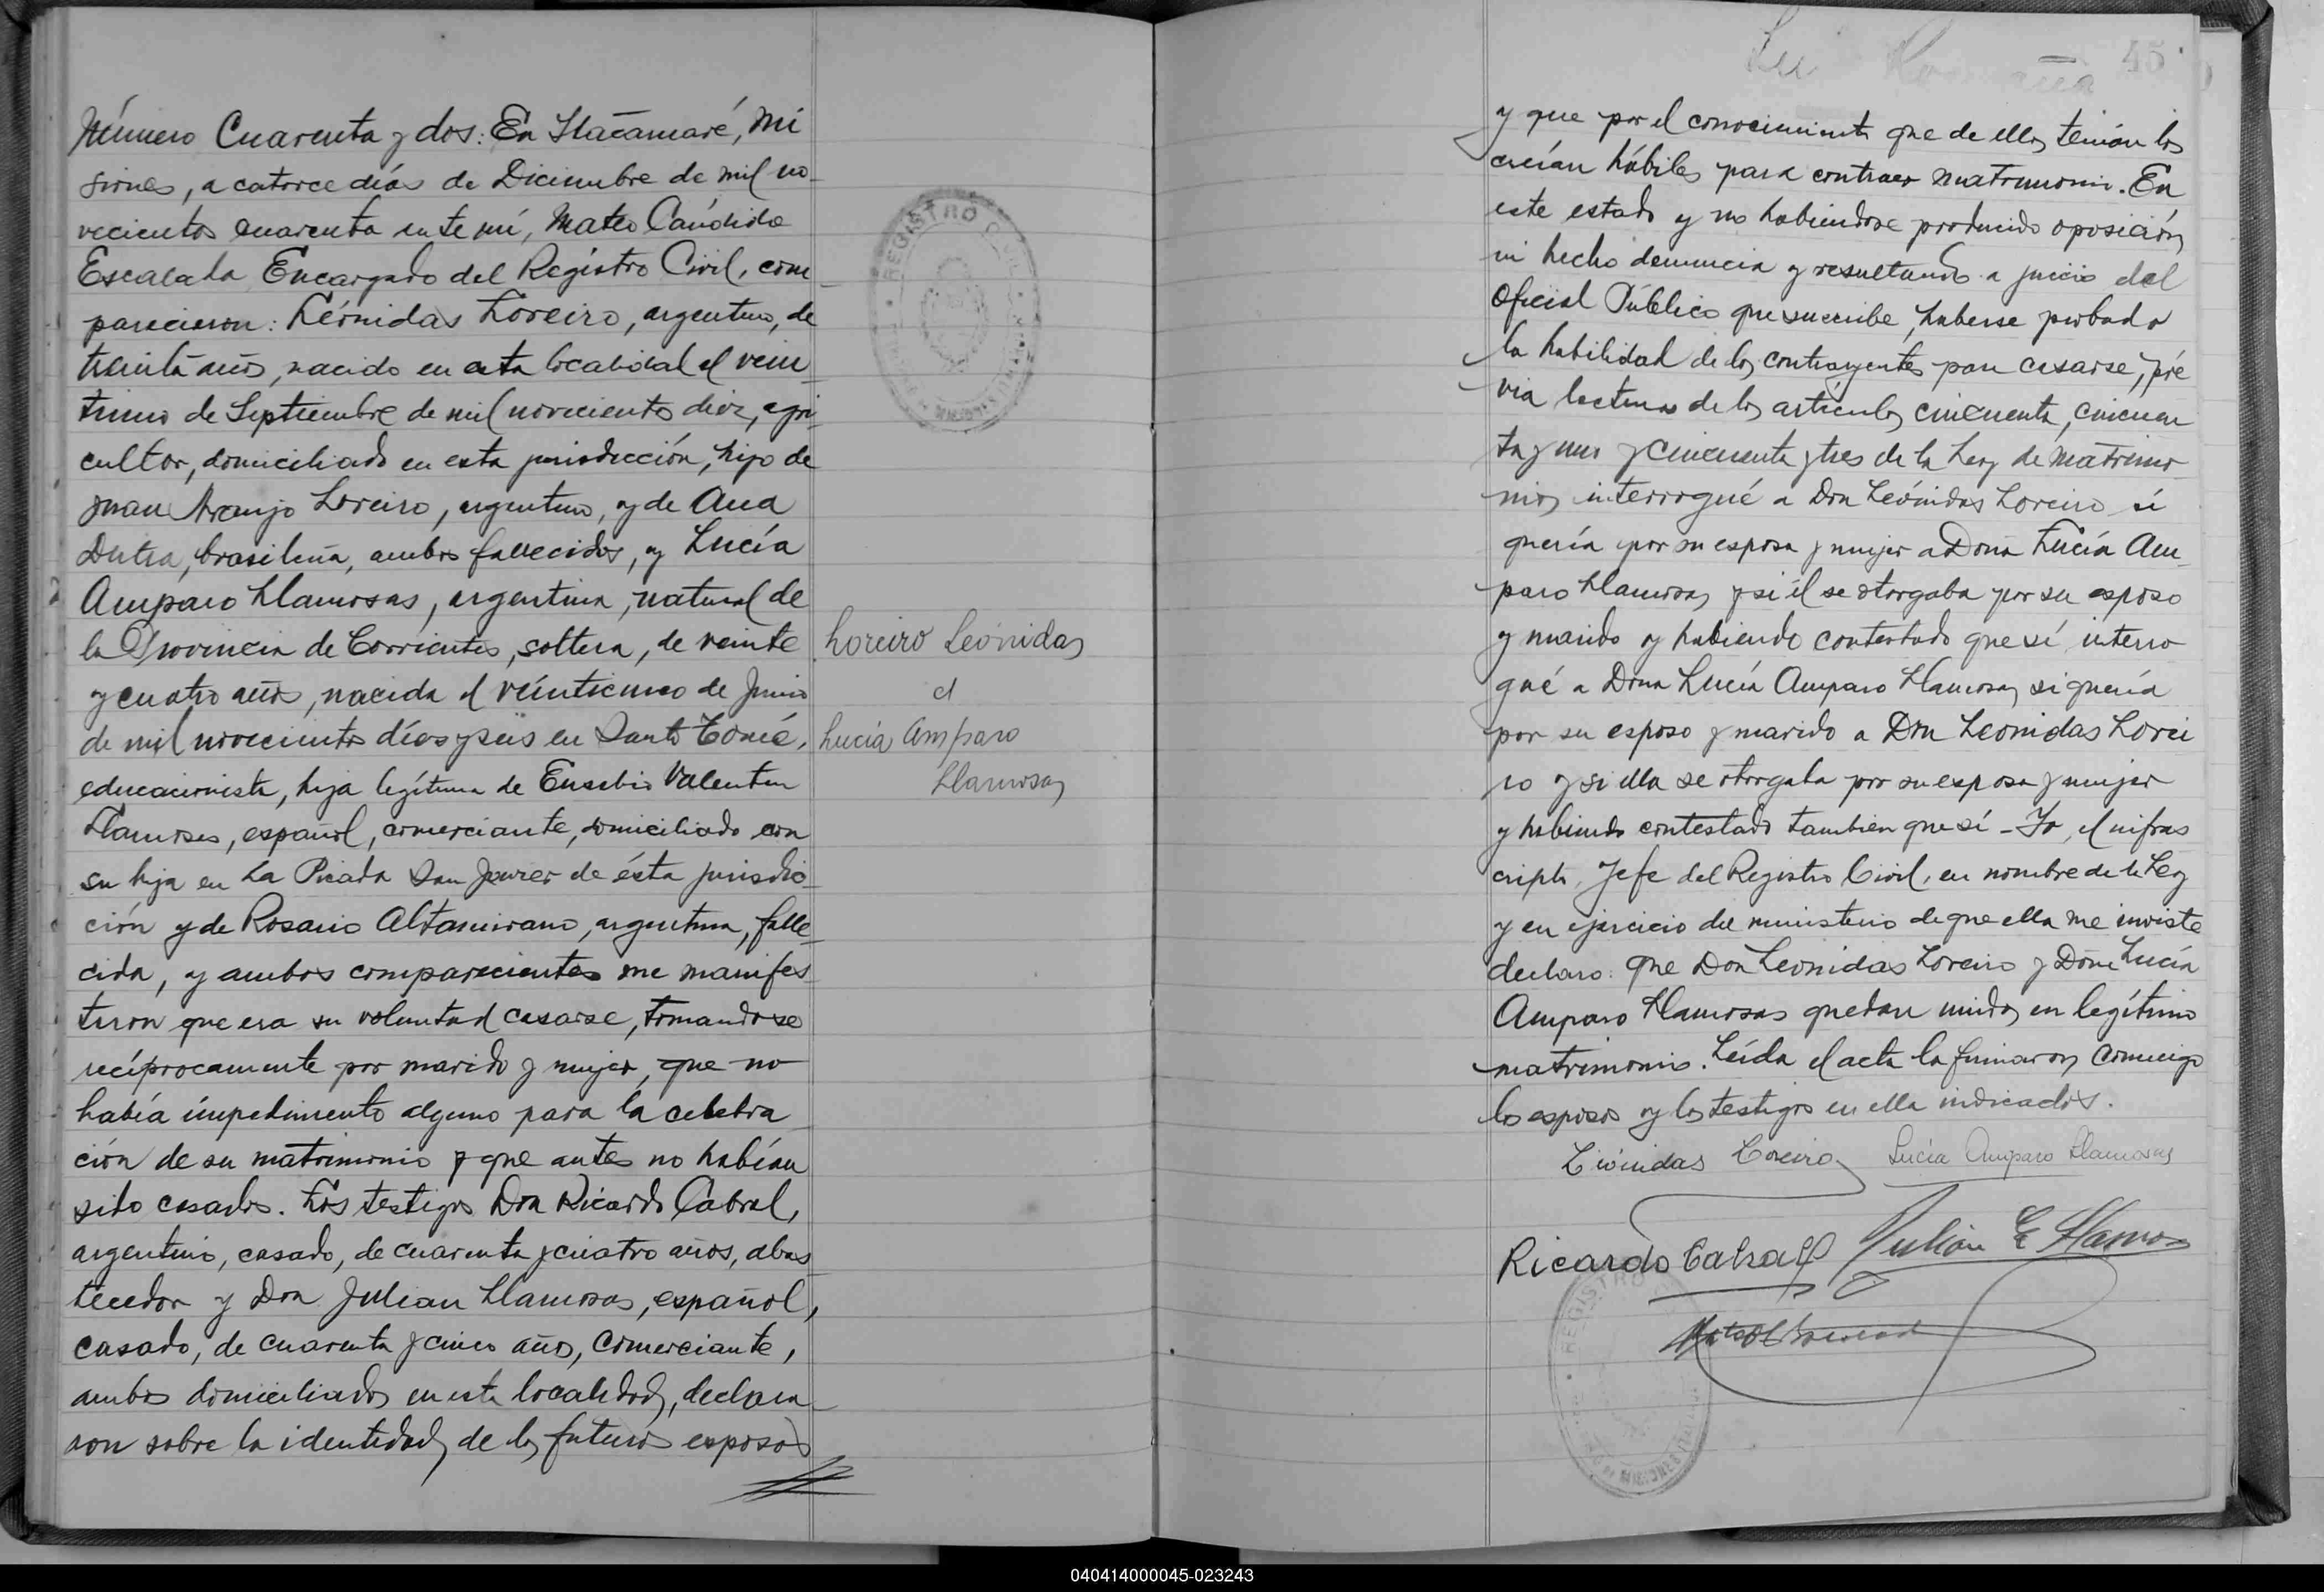 Número Cuarenta y dos: En Itacaruaré, Mi
siones, a catorce días de Diciembre de mil no-
vecientos cuarenta ante mí, Mateo Cándido
Escalada Encargado del Registro Civil, com
parecieron: Leónidas Loreiro, argentino, de
treinta años, nacido en esta localidad el vein
tiuno de Septiembre de mil novecientos diez, agri
cultor, domiciliado en esta jurisdicción, hijo de
Juan Araujo Loreiro, argentino, y de Ana
Dutra, brasileña, ambos fallecidos, y Lucía
Amparo Llamosas, argentina, natural de
la Provincia de Corrientes, soltera, de veinte
y cuatro años, nacida el veinticinco de Junio
de mil novecientos diez y seis en Santo Tomé,
educacionista, hija legítima de Eusebio Valentin
Llamosas, español, comerciante, domiciliado con
su hija en La Picada San Javier de ésta jurisdic-
ción y de Rosario Altamirano, argentina, falle-
cida, y ambos comparecientes me manifes
taron que era su voluntad casarse, tomandose
recíprocamente por marido y mujer, que no
había impedimento alguno para la celebra
ción de su matrimonio y que antes no habían
sido casados. Los testigos Don Ricardo Cabral,
argentino, casado, de cuarenta y cuatro años, abas
tecedor y Don Julian Llamosas, español,
casado, de cuarenta y cinco años, comerciante,
ambos domiciliados en esta localidad, declara-
ron sobre la identidad de los futuros esposos
Loreiro Leónidas
c/
Lucía Amparo
Llamosas
REGISTRO CIVIL
45
y que por el conocimiento que de ellos tenían los
creían hábiles para contraer matrimonio. En
este estado y no habiendose producido oposición
ni hecho denuncia y resultando a juicio del
Oficial Público que suscribe, haberse probado
la habilidad de los contrayentes para casarse, pre
via lectura de los artículos cincuenta, cincuen
ta y uno y cincuenta y tres de la Ley de Matrimo
nio, interrogué a Don Leónidas Loreiro si
quería por su esposa y mujer a Doña Lucía Am-
paro Llamosas y si él se otorgaba por su esposo
y marido y habiendo contestado que sí interro
gué a Doña Lucía Amparo Llamosas si quería
por su esposo y marido a Don Leonidas Lorei
ro y si ella se otorgaba por su esposa y mujer
y habiendo contestado tambien que sí - Yo, el infras
cripto, Jefe del Registro Civil, en nombre de la Ley
y en ejercicio del ministerio de que ella me inviste
declaro: que Don Leonidas Loreiro y Doña Lucía
Amparo Llamosas quedan unidos en legítimo
matrimonio. Leída el acta la firmaron conmigo
los esposos y los testigos en ella indicados.
Leónidas Loreiro Lucía Amparo Llamosas
Ricardo Cabral Julian E Llamosas
REGISTRO
MISIONES
040414000045-023243